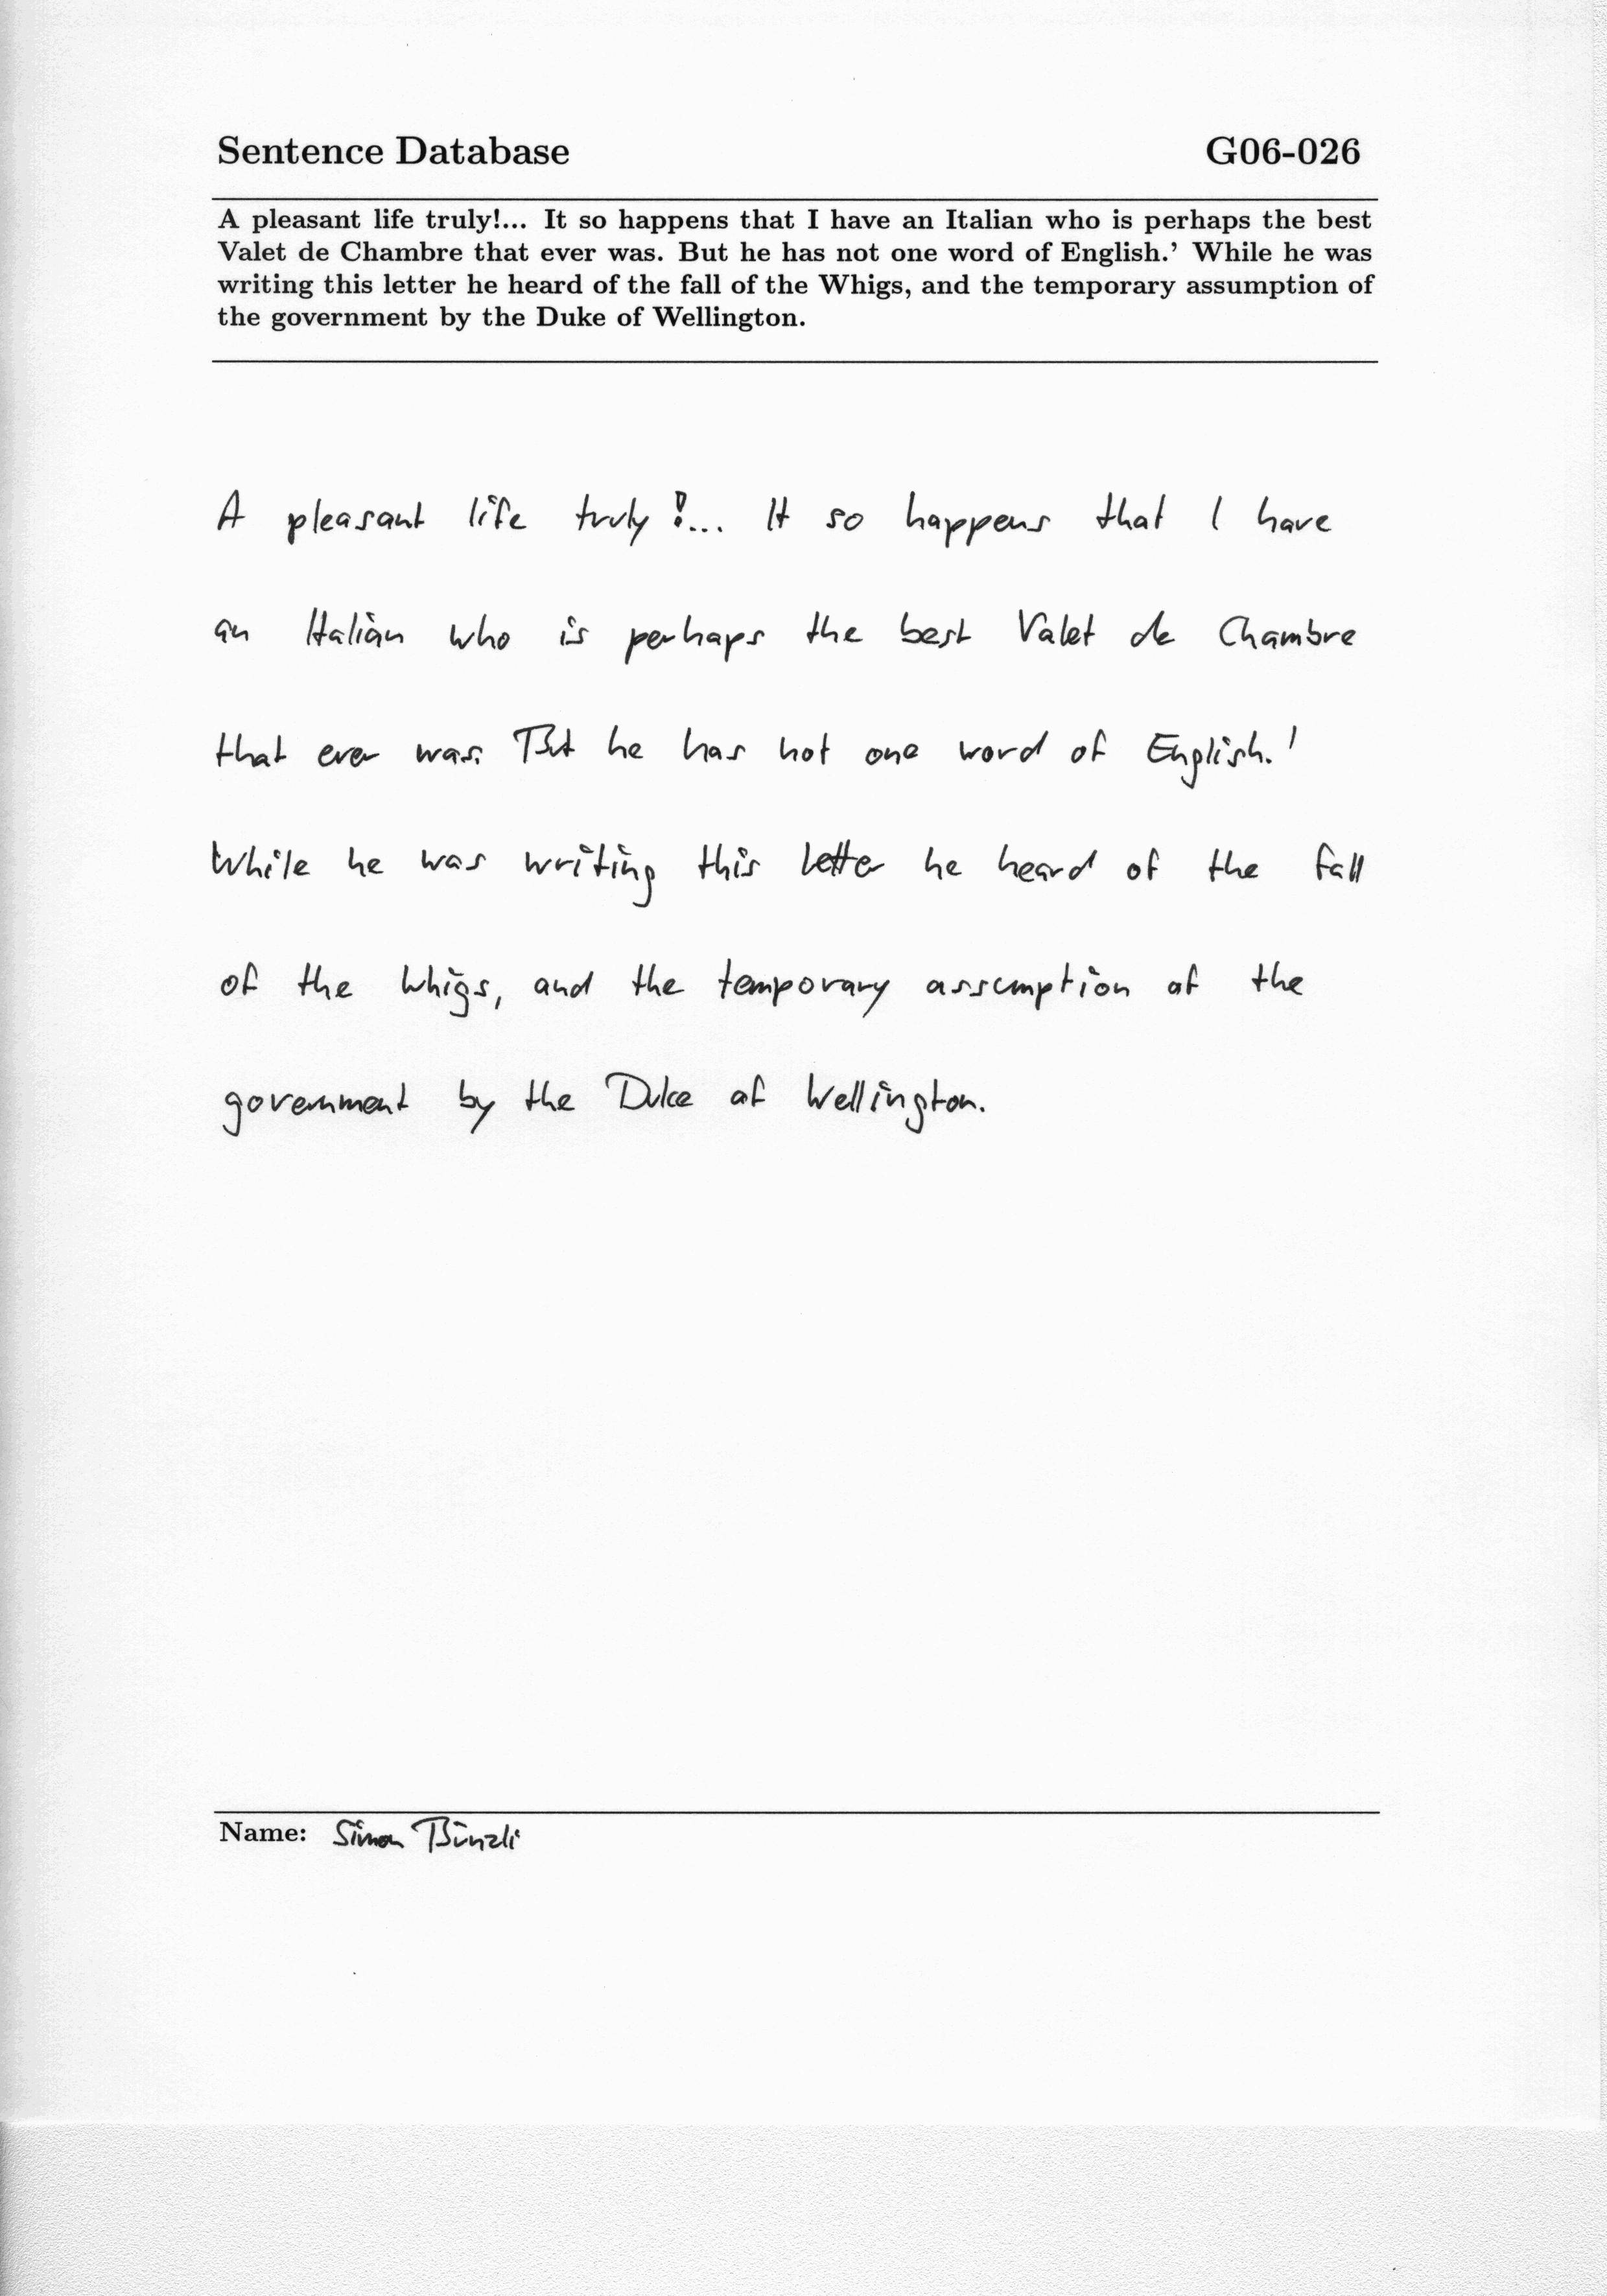 Sentence Database G06-026
A pleasant life truly!... It so happens that I have an Italian who is perhaps the best
Valet de Chambre that ever was. But he has not one word of English.' While he was
writing this letter he heard of the fall of the Whigs, and the temporary assumption of
the government by the Duke of Wellington.
A pleasant life truly!... It so happens that I have
an Italian who is perhaps the best Valet de Chambre
that ever was. But he has not one word of English.'
While he was writing this letter he heard of the fall
of the Whigs, and the temporary assumption of the
government by the Duke of Wellington.
Name: Simon Bünzli